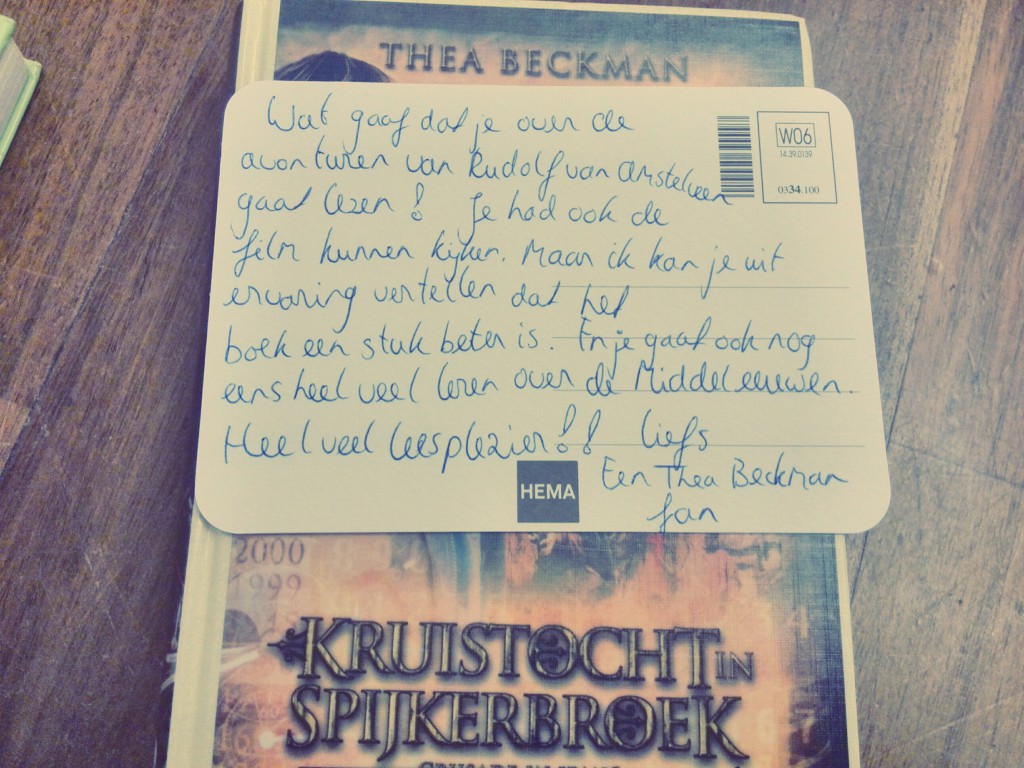 THEA BECKMAN
Wat gaaf dat je over de
avonturen van Rudolf van Amstelveen
gaat lezen! Je had ook de
film kunnen kijken. Maar ik kan je uit
ervaring vertellen dat het
boek een stuk beter is. En je gaat ook nog
eens heel veel leren over de Middeleeuwen.
Heel veel leesplezier!! liefs
Een Thea Beckman
fan
W06
14.39.0139
0334.100
HEMA
2000
1999
KRUISTOCHT IN
SPIJKERBROEK